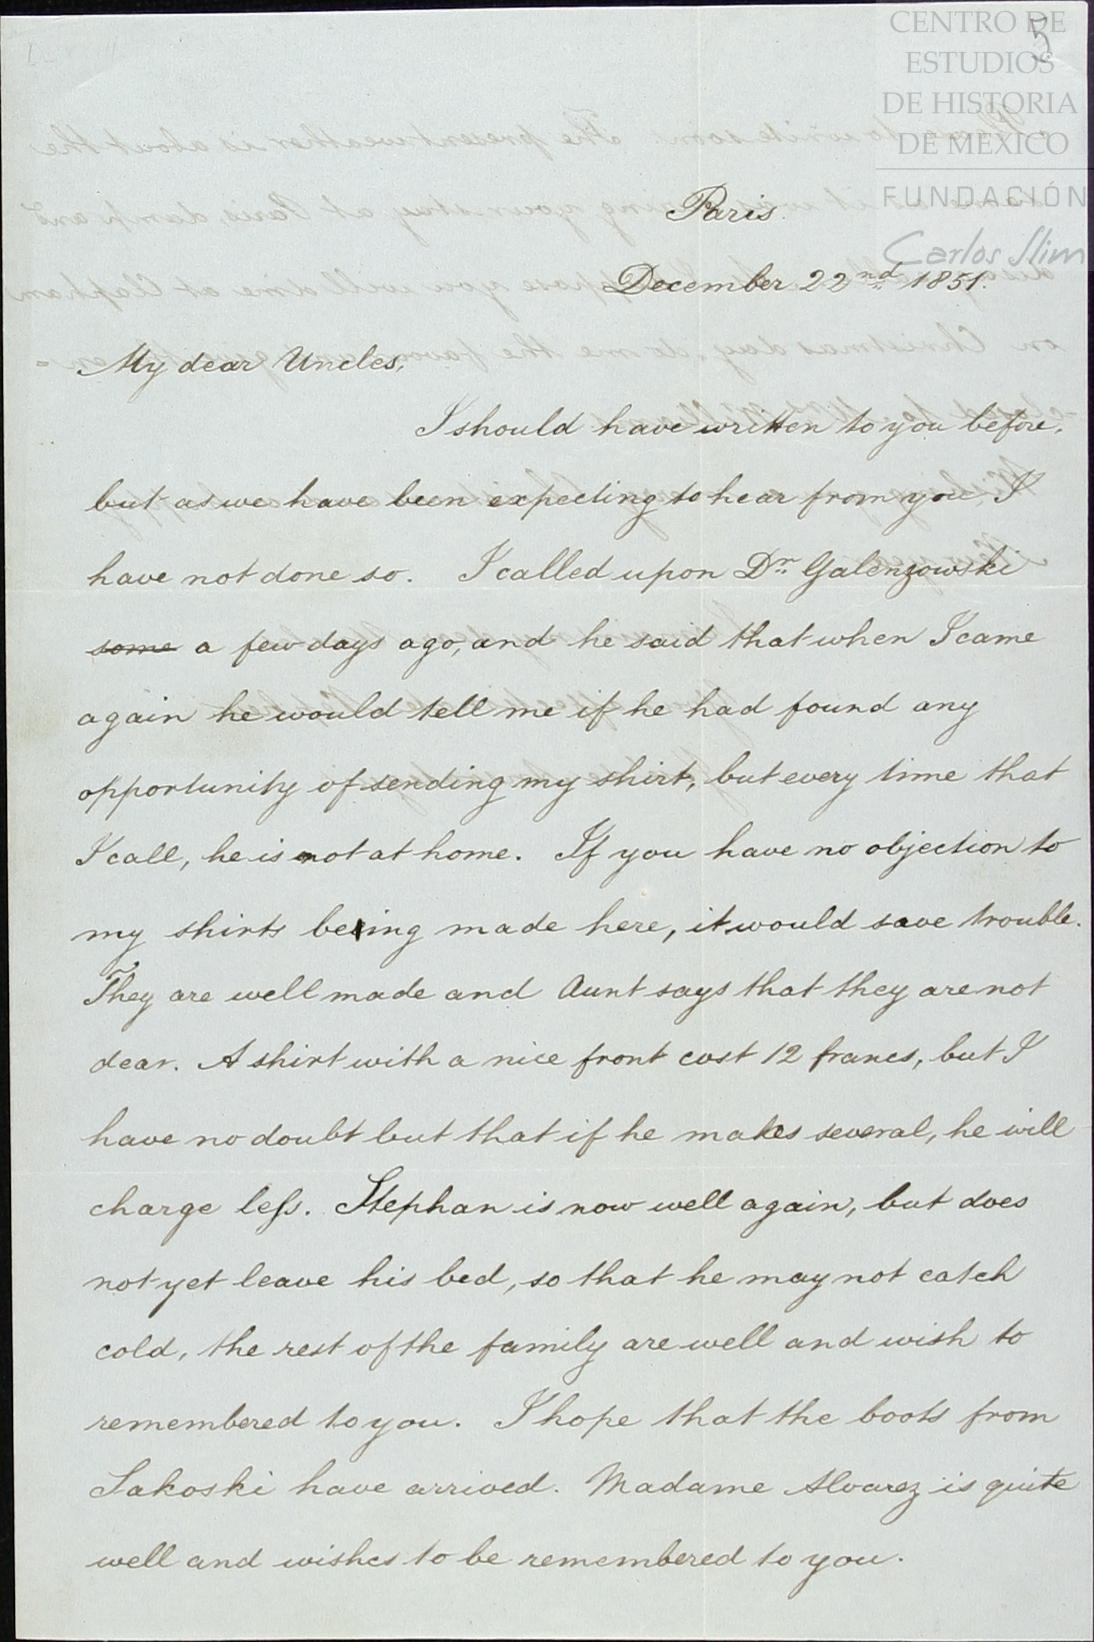 CENTRO DE
ESTUDIOS
DE HISTORIA
DE MÉXICO
FUNDACIÓN
Carlos Slim
5
Paris.
December 22nd 1851.
My dear Uncles,
I should have written to you before,
but as we have been expecting to hear from you I
have not done so. I called upon Dr. Galenzowski
some a few days ago, and he said that when I came
again he would tell me if he had found any
opportunity of sending my shirt, but every time that
I call, he is not at home. If you have no objection to
my shirts being made here, it would save trouble.
They are well made and Aunt says that they are not
dear. A shirt with a nice front cost 12 francs, but I
have no doubt but that if he makes several, he will
charge leſs. Stephan is now well again, but does
not yet leave his bed, so that he may not catch
cold, the rest of the family are well and wish to
remembered to you. I hope that the boots from
Sakoski have arrived. Madame Alvarez is quite
well and wishes to be remembered to you.